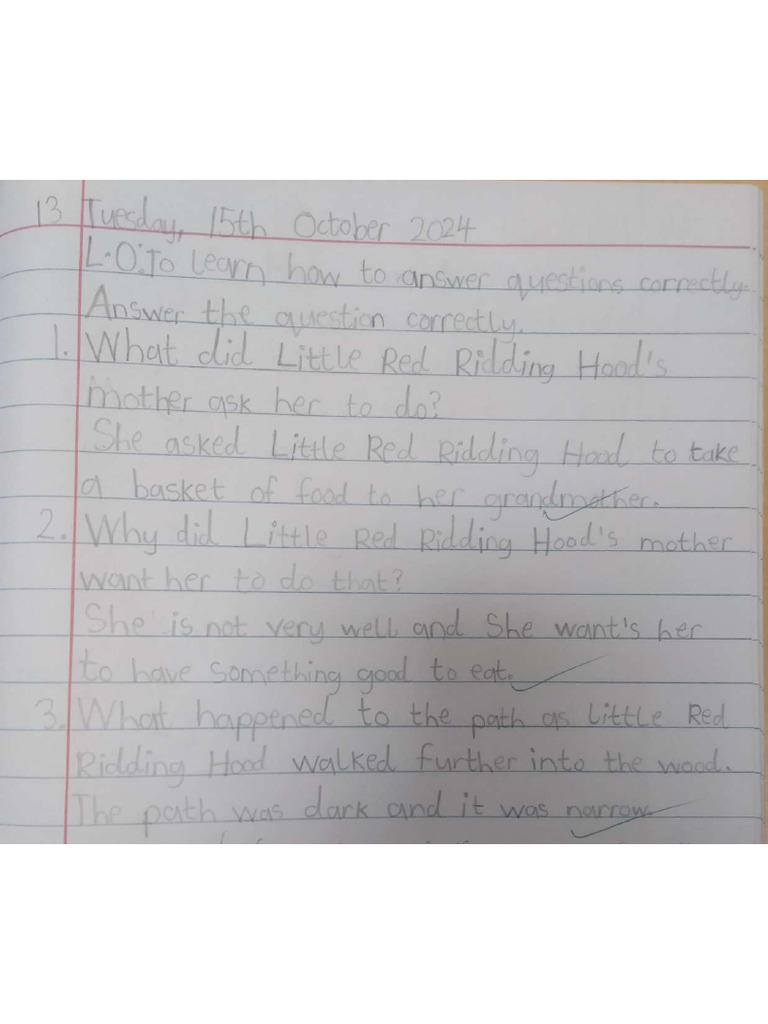 13 Tuesday, 15th October 2024
L.O: To learn how to answer questions correctly.
Answer the question correctly.
1. What did Little Red Ridding Hood's
mother ask her to do?
She asked Little Red Ridding Hood to take
a basket of food to her grandmother.
2. Why did Little Red Ridding Hood's mother
want her to do that?
She is not very well and She want's her
to have something good to eat.
3. What happened to the path as Little Red
Ridding Hood walked further into the wood.
The path was dark and it was narrow.